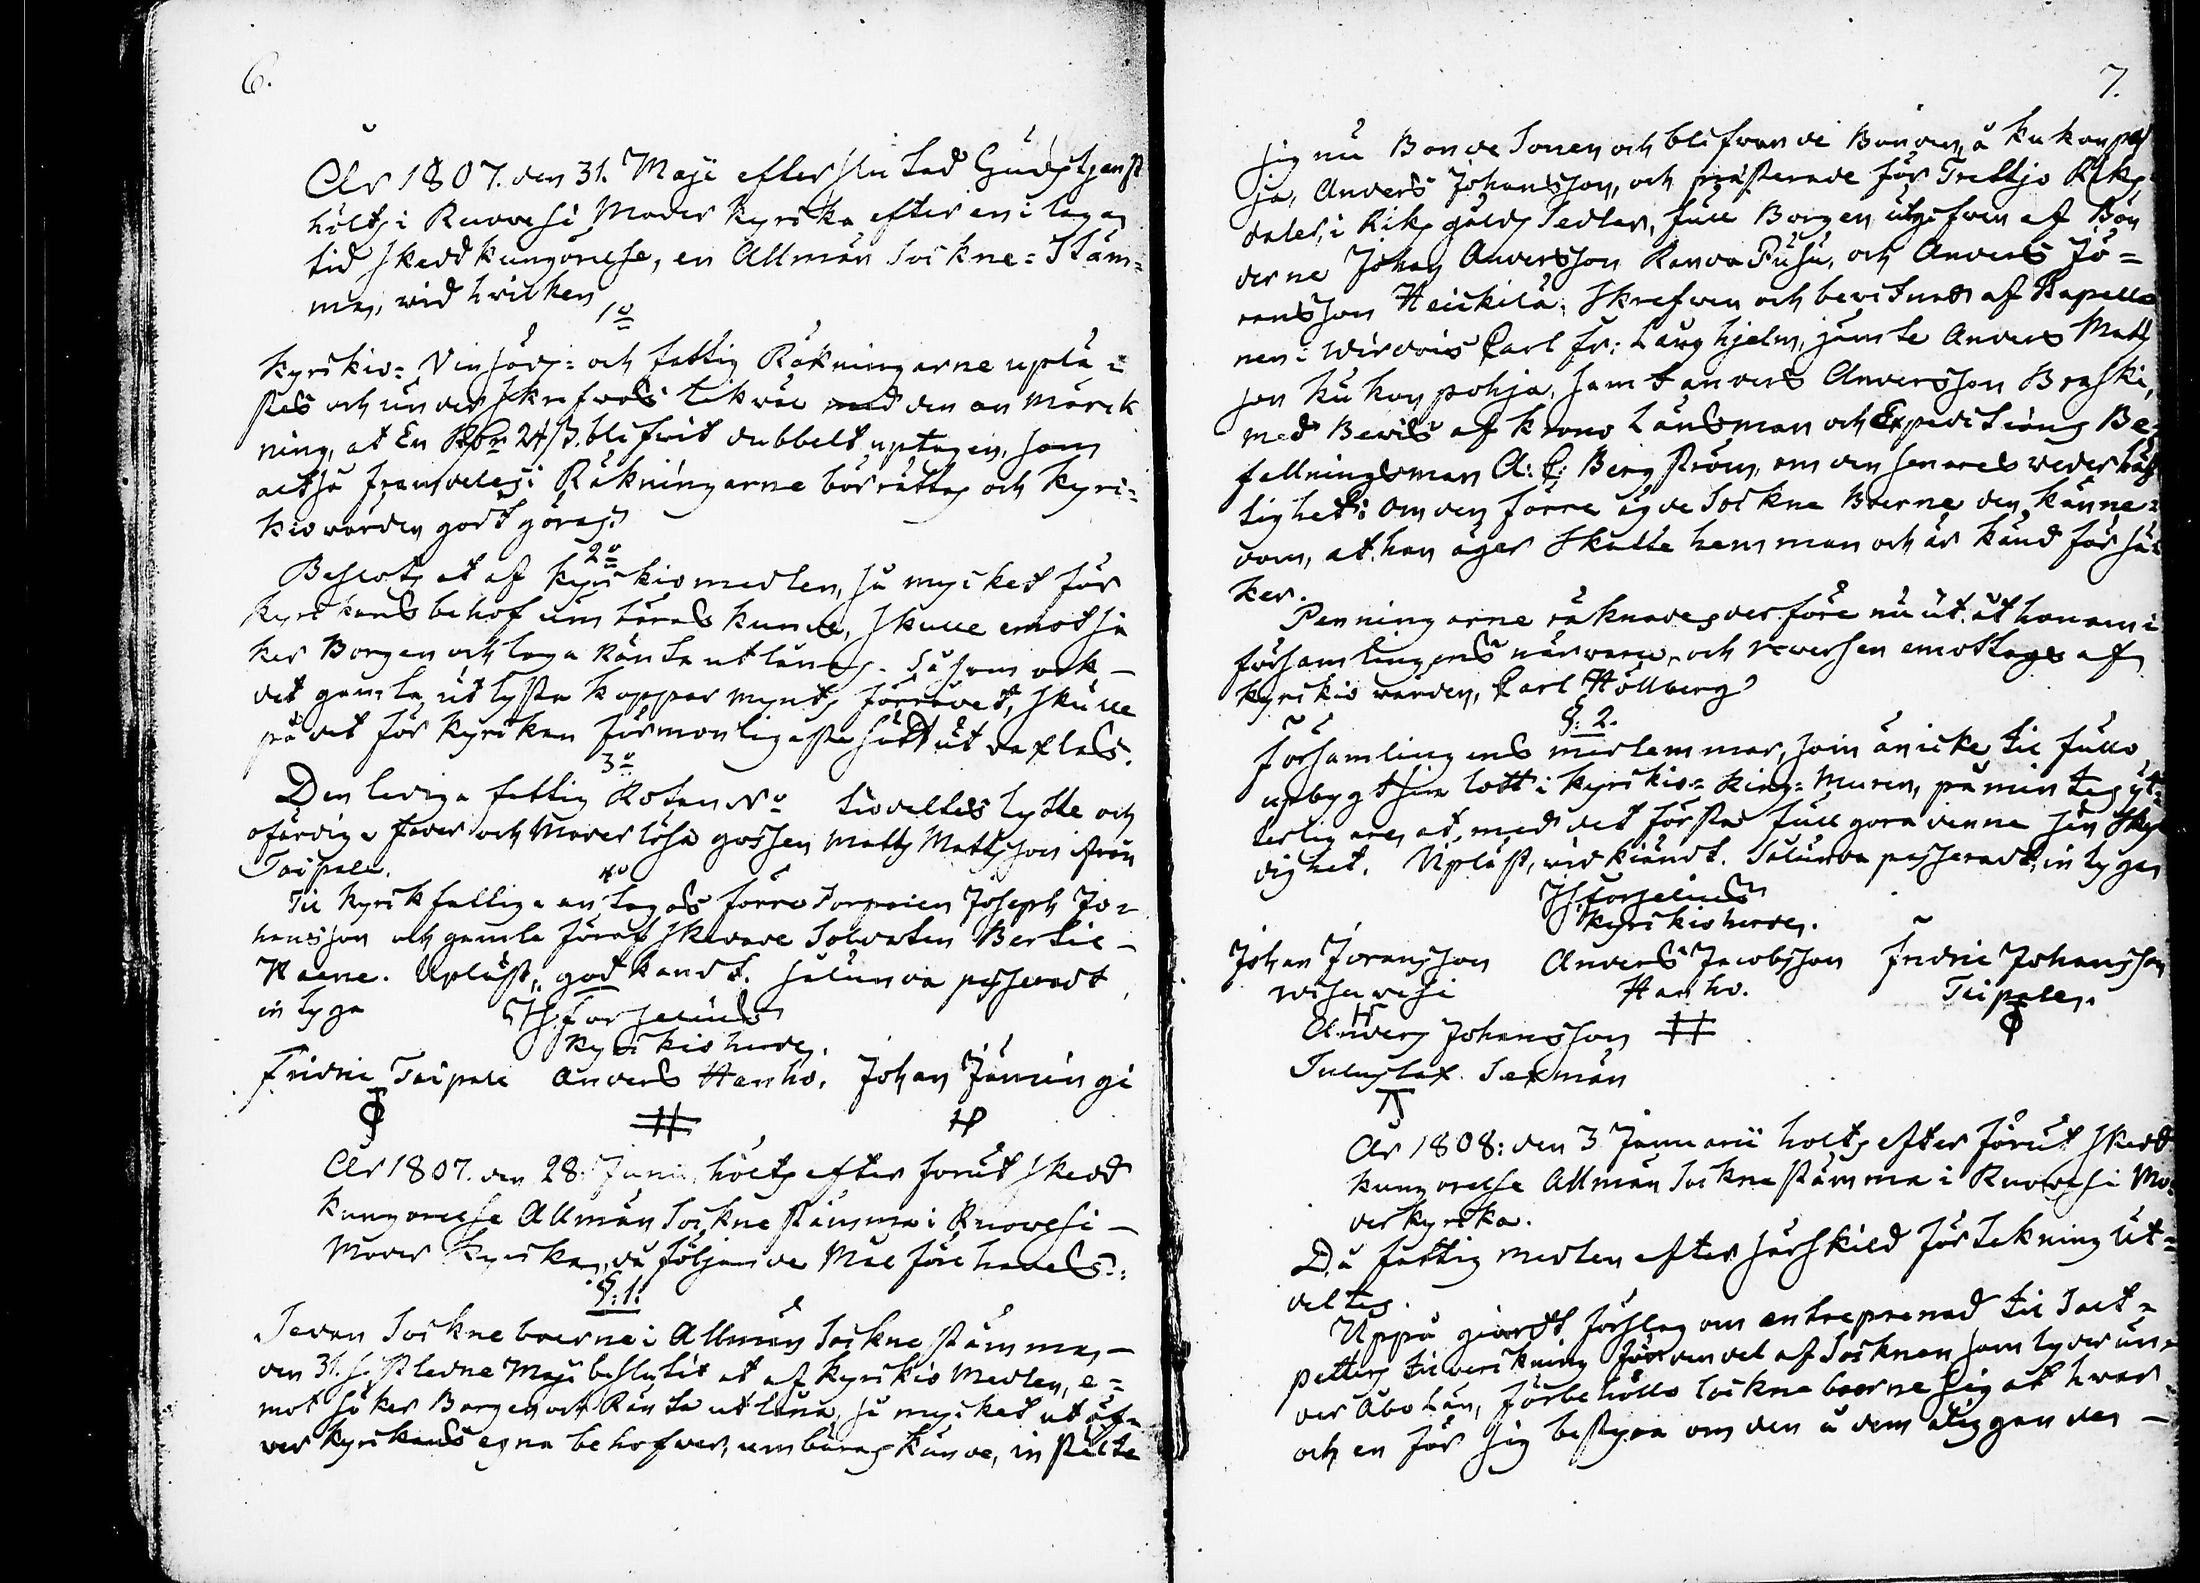 6.
År 1807. den 31. Maji efter slutad Gudstjenst
hölts i Ruovesi Moder kyrka efter en i lagan
tid skedd kungörelse, en Allmän Sockne=Stäm=
ma, vid hvilken
1o
Kyrkio= Vinjords= och fattig Räkningarne uplä=
stes och underskrefvos likväl med den anmärck
ning, at En Rdr 24 ß. blifvit dubbelt uptagen, som
altså framdeles i Räkningarne bör rättas och Kyri=
kiovärden godt göras.
2o
Beslöts at af Kyrkiomedlen, så mycket för
kyrkans behof umbäras kunde, skulle emot sä
ker Borgen och laga Ränta utlånas. Såsom ock
det gamla utlysta koppar mynts förrådet, skulle
på det för Kyrkan förmonligaste sätt utvexlas.
3o
Den lediga fattig Rotan No tildeltes lytte och
ofärdige fader och Moderlösa gossen Matts Mattsson från
Taipale.
4o
Til Kyrkfattige antagos förre Torparen Joseph Jo=
hansson och gamle förafskedade Soldaten Bertil
Harne. Upläst, godkändt. Sålunda passeradt,
intyga
H. Forselius
Kyrkioherde.
Fridric Taipale Anders Hanho. Johan Jämingi
År 1807. den 28. Junii hölts efter förut skedd
kungörelse Allmän Sockne stämma i Ruovesi
Moder Kyrka, då följande Mål förehades:
§. 1.
Sedan Sockneboerne i Allmän Sockne stämma,
den 31. sistledne Maji beslutit at af Kyrkio Medlen, e=
mot säker Borgen och Ränta utlåna, så mycket utöf=
ver Kyrkans egna behofver, umbäras kunde, instälte
7.
sig nu Bonde Sonen och blifvande Bonden, å Kukonpoh
ja, Anders Johansson, och præsterade för Trettjo Riks
daler, i Riks gälds Sedlar, full Borgen utgifven af Bön
derne Johan Andersson Randa Pusu, och Anders Jö=
ransson Heickilä, skrefven och bevitnad af Kapella
nen i Wirdois Carl Fr: Laughjelm, jämte Anders Matts
son Kukonpohja, samt Anders Andersson Braski,
med Bevis af Krono Länsman och Expeditions Be=
fallningsman A: C: Bergström, om den senares vederhäf
tighet: om den förre ägde Sockne Boerne den känne=
dom, at han äger Skatte hemman och är känd för sä=
ker.
Penningarne räknades derföre nu ut åt honom i
församlingens närvaro, och reversen emottags af
Kyrkio värden, Carl Hollberg
§. 2.
Församlingens medlemmar, som än icke til fullo
upbygt sin lott i Kyrkio=Ring=Muren, påmintes yt=
terligare, at med det första fullgöra denne sin skyl
dighet. Upläst, vidkiändt. Sålunda passeradt, intygar
H. Forselius
Kyrkioherde.
Johan Joransson Anders Jacobsson Fridric Johansson
Visuvesi Hanho. Taipale.
Anders Johansson
Sexman
År 1808: den 3 Januarii holts efter förut skedd
kungörelse Allmän Sockne stämma i Ruovesi Mo=
derkyrka.
Då fattig medlen efter särskild förtekning ut=
deltes.
Uppå giordt förslag om entreprenad til Salt=
petters tilverkning för den del af Socknen som lyder un=
der Åbo Län, förbehöllo Sockneboerne sig at hvar
och en för sig bestyra om den å dem åliggande